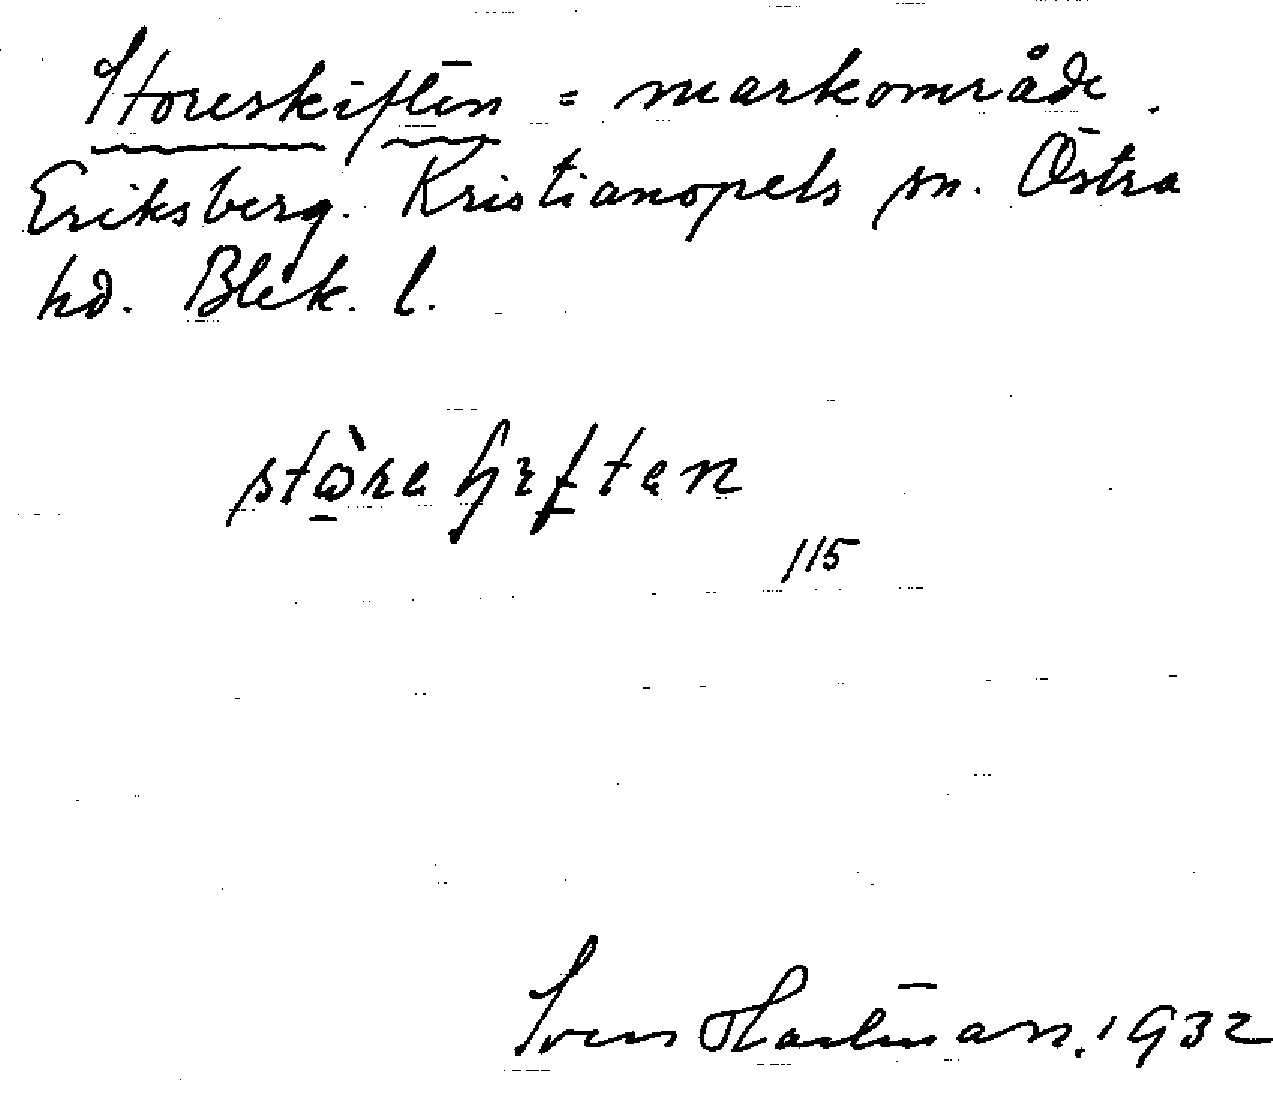 Storeskiften = markområde.
Eriksberg. Kristianopels sn. Östra
hd. Blek. l.
115
Sven Hartman. 1932